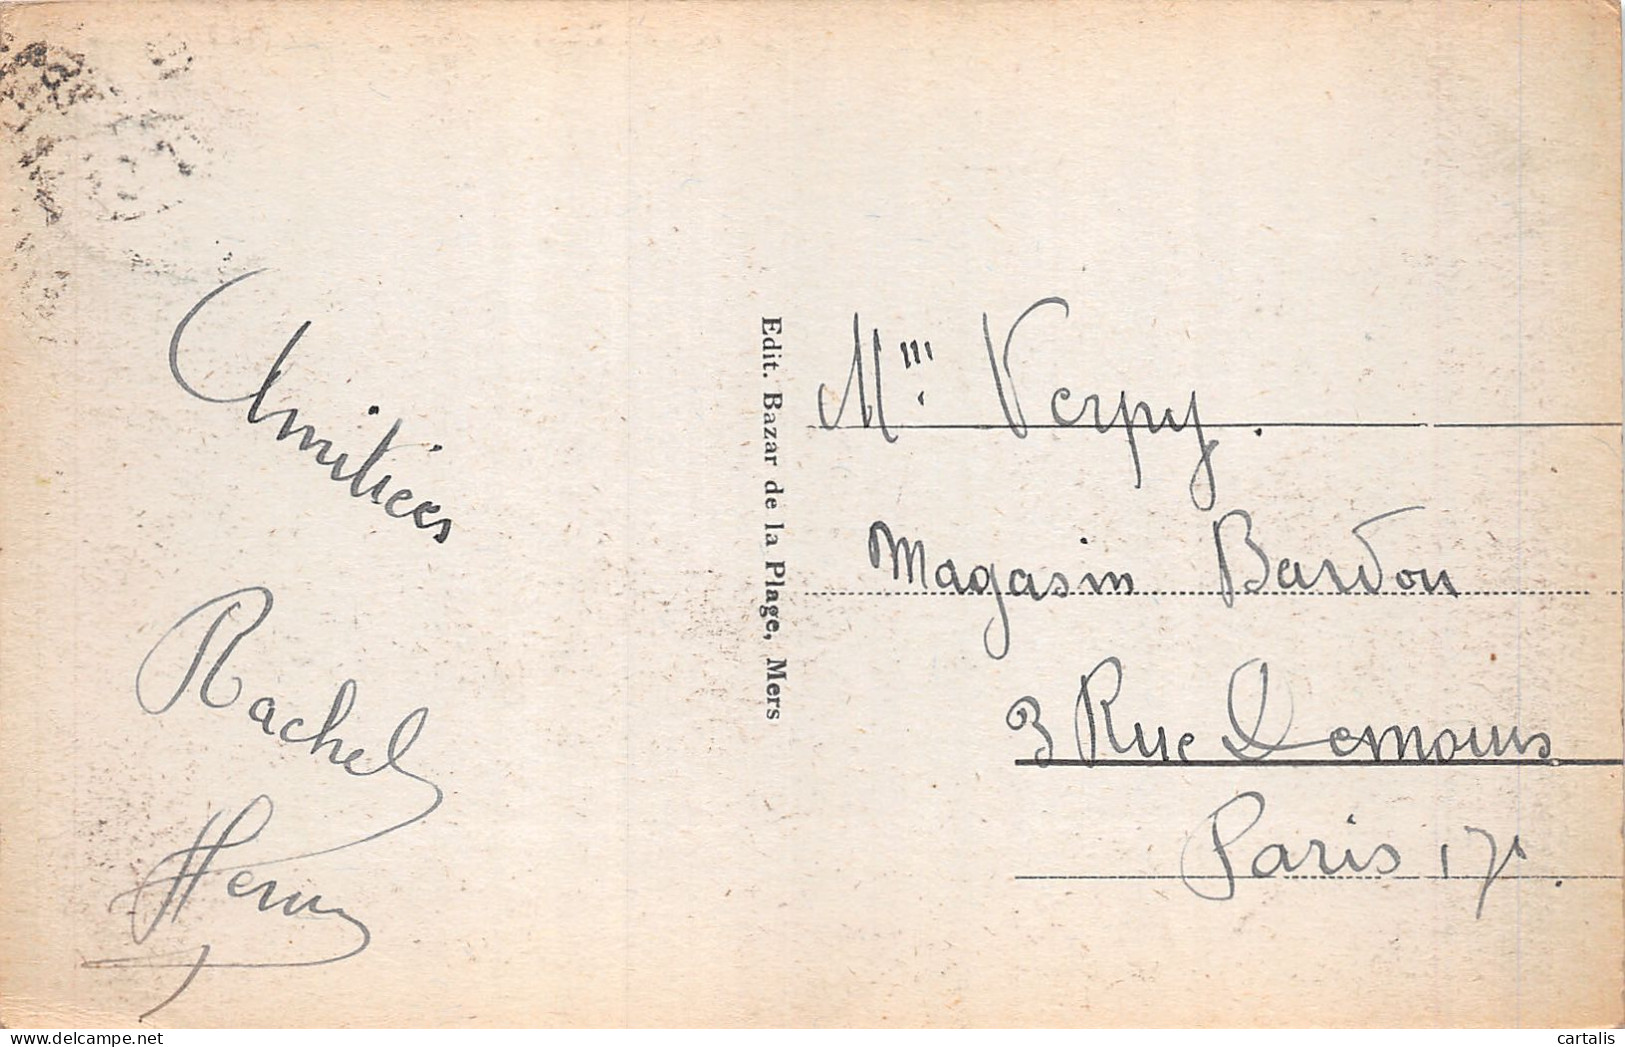 Amitiées
Rachel
Edit. Bazar de la Plage, Mers
Magasin Bardou
3 Rue Demours
Paris 17e.
cartalis